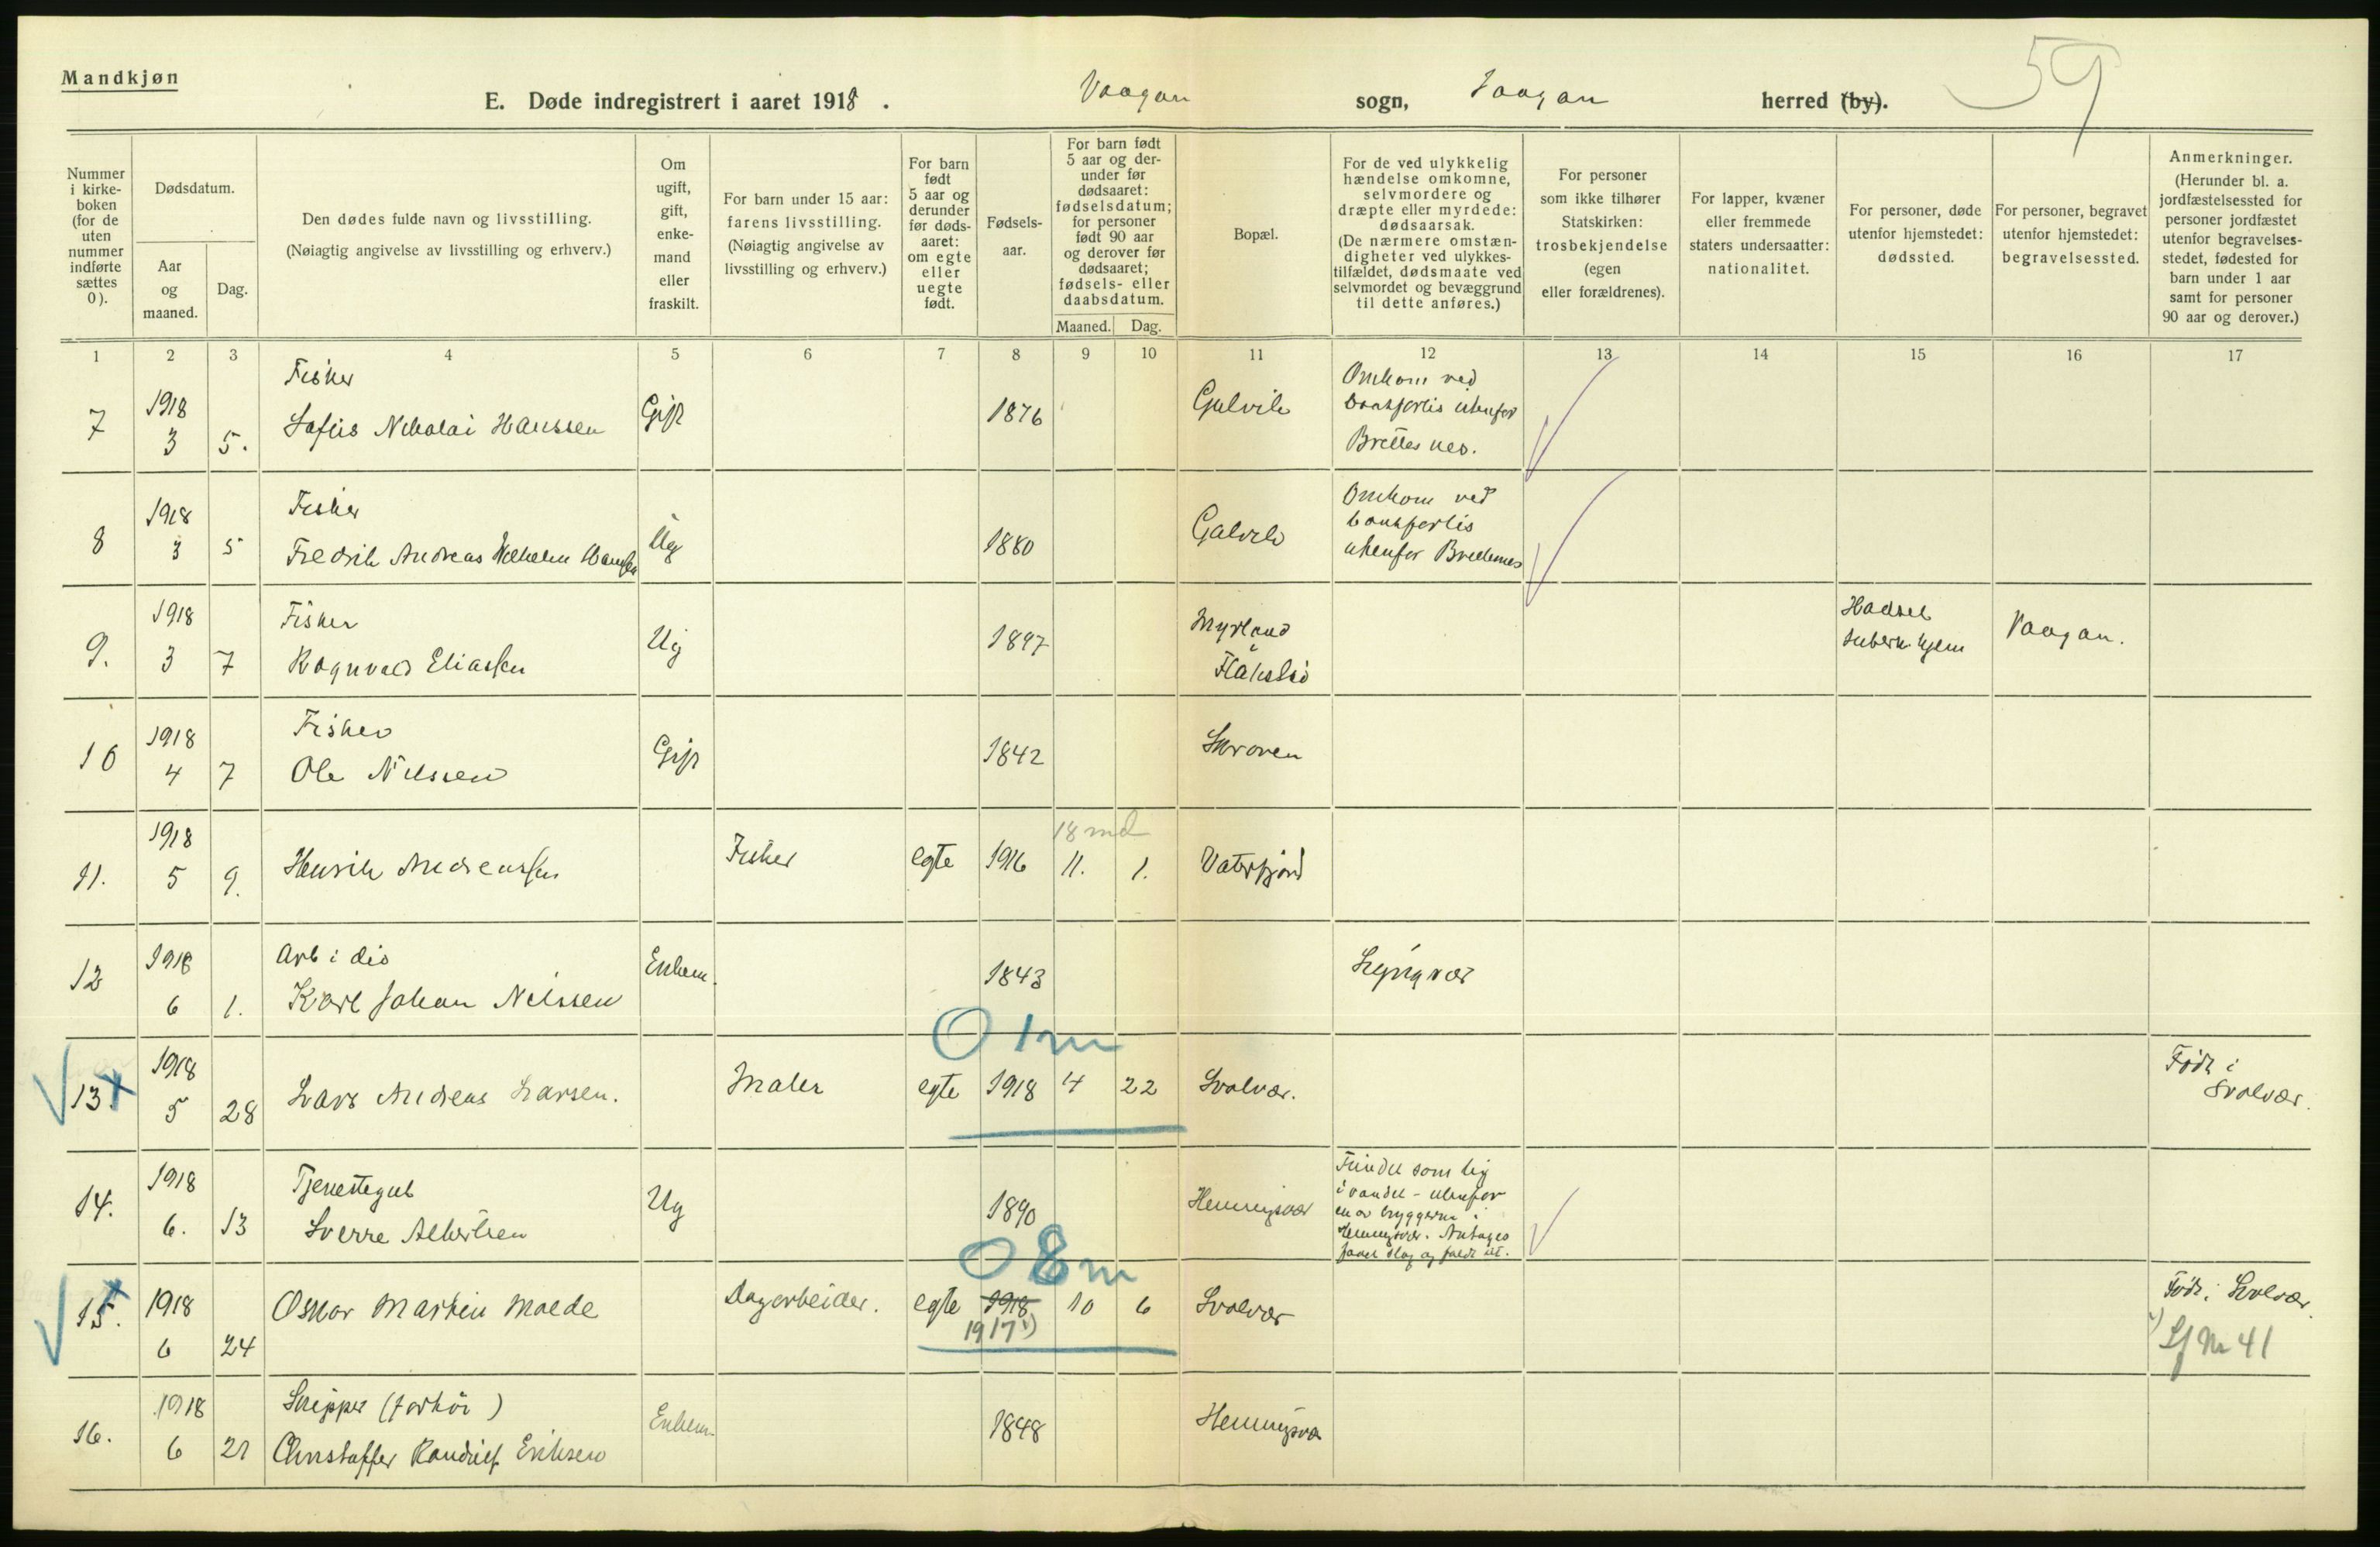 Mandkjøn
E. Døde indregistrert i aaret 1918.
Vaagan sogn, Vaagan herred (by).
59
Nummer i kirke-
boken
(for de
uten
nummer
indførte
sættes
0).
Dødsdatum.
Aar
og
maaned.
Dag.
Den dødes fulde navn og livsstilling.
(Nøiagtig angivelse av livsstilling og erhverv.)
Om
ugift,
gift,
enke-
mand
eller
fraskilt.
For barn under 15 aar:
farens livsstilling.
(Nøiagtig angivelse av
livsstilling og erhverv.)
For barn
født
5 aar og
derunder
før døds-
aaret:
om egte
eller
uegte
født.
Fødsels-
aar.
For barn født
5 aar og der-
under før
dødsaaret:
fødselsdatum;
for personer
født 90 aar
og derover før
dødsaaret;
fødsels- eller
daabsdatum.
Maaned. Dag.
Bopæl.
For de ved ulykkelig
hændelse omkomne,
selvmordere og
dræpte eller myrdede:
dødsaarsak.
(De nærmere omstæn-
digheter ved ulykkes-
tilfældet, dødsmaate ved
selvmordet og bevæggrund
til dette anføres.)
For personer
som ikke tilhører
Statskirken:
trosbekjendelse
(egen
eller forældrenes).
For lapper, kvæner
eller fremmede
staters undersaatter:
nationalitet.
For personer, døde
utenfor hjemstedet:
dødssted.
For personer, begravet
utenfor hjemstedet:
begravelsessted.
Anmerkninger.
(Herunder bl. a.
jordfæstelsessted for
personer jordfæstet
utenfor begravelses-
stedet, fødested for
barn under 1 aar
samt for personer
90 aar og derover.)
1 2 3 4 5 6 7 8 9 10 11 12 13 14 15 16 17
7
1918
3 5.
Fisker
Nikolai Hanssen
Gift
1876
Gulvik
Omkom ved
baatforlis utenfor
Brettesnes.
8
1918
3 5
Fisker
Fredrik Andreas Vilhelm Hanssen
Ug
1880
Galvik
Omkom ved
baatforlis
utenfor Brettesnes
9.
1918
3 7
Fisker
Ragnvald Eliassen
Ug
1897
Myrland
Flakstad
Hadsel
tuberk. hjem
Vaagan.
10
1918
4 7
Fisker
Ole Nilssen
Gift
1842
Skroven
11.
1918
5 9.
Henrik Andreassen
Fisker
egte
1916
18 md
11. 1.
Vaterfjord
12
1918
6 1.
Arb i dis
Karl Johan Nilssen
Enkem.
1843
Lyngvær
0 1m
13 x
1918
5 28
Lars Andreas Larsen.
Maler
egte
1918
4 22
Svolvær.
Født i
Svolvær.
14.
1918
6. 13
Tjenestegut
Sverre Albertsen
Ug
1890
Henningsvær
Fundet som lig
i vandet - utenfor
en av bryggerne i
Henningsvær. Antages
faaet slag og faldt ut.
0 8m
15. x
1918
6 24
Oskar Martin Molde
Dagarbeider.
egte
1918
1917 1)
10 6
Svolvær
Født i Svolvær.
1) Lf Nr 41
16.
1918
6 21
Skipper (forhv)
Christoffer Randulf Eriksen
Enkem.
1848
Henningsvær